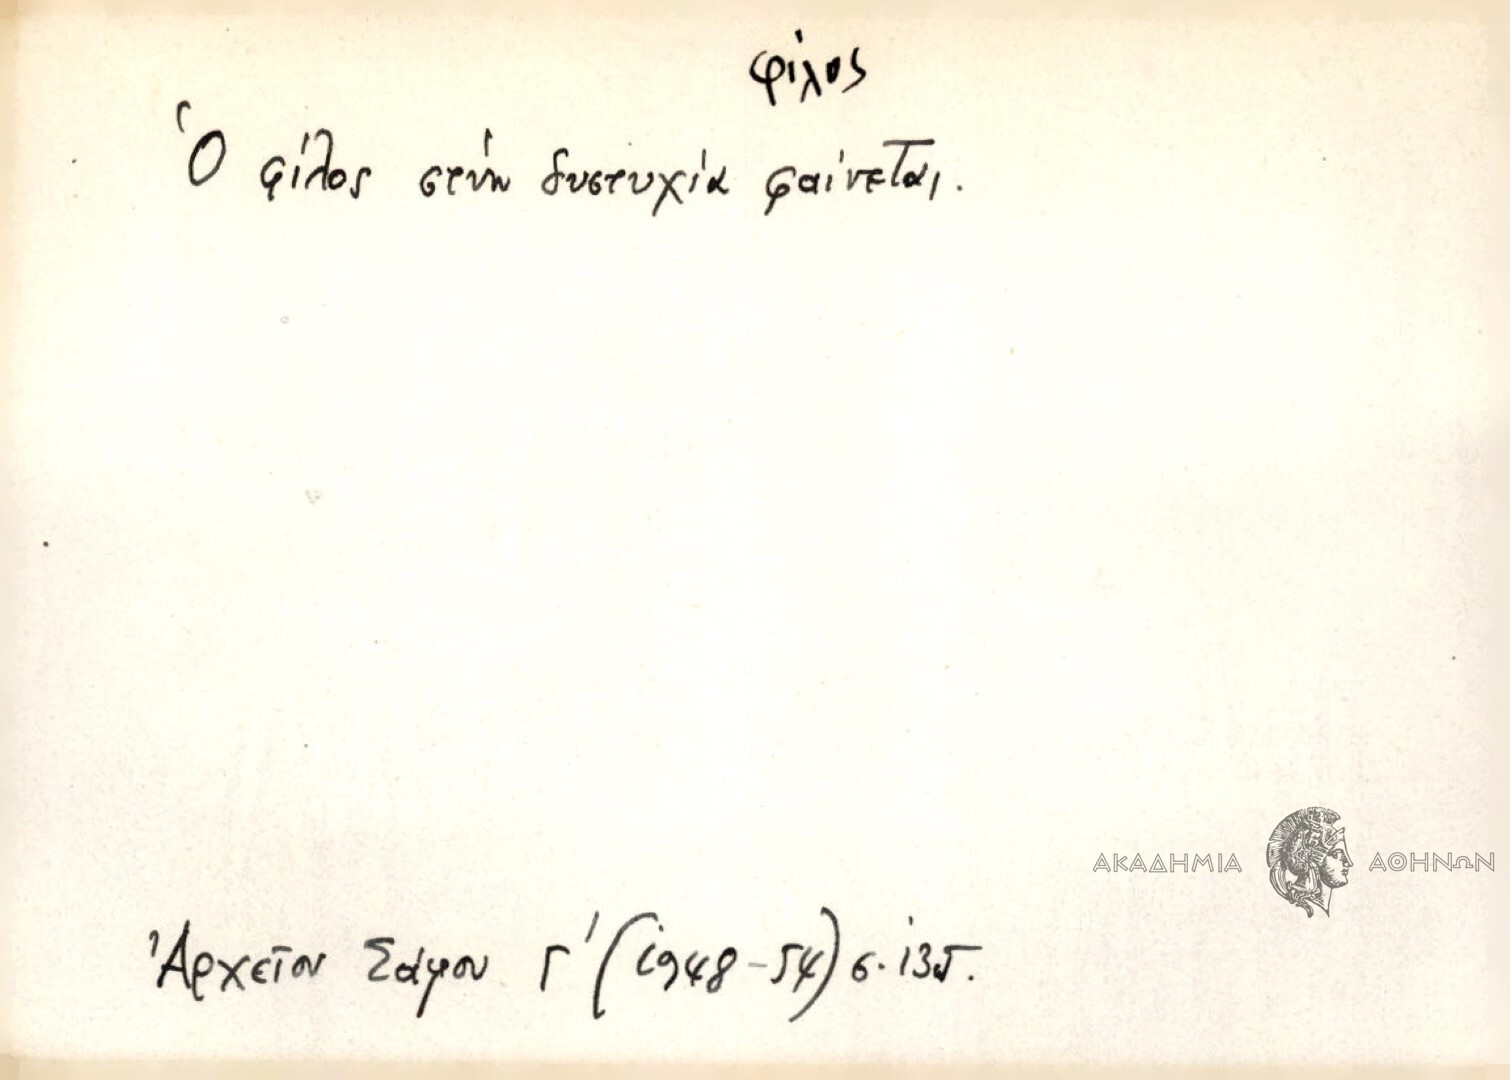 φίλος
Ὁ φίλος στήν δυστυχία φαίνεται.
ΑΚΑΔΗΜΙΑ ΑΘΗΝΩΝ
Ἀρχεῖον Σάμου Γ΄ (1948-54) σ. 135.